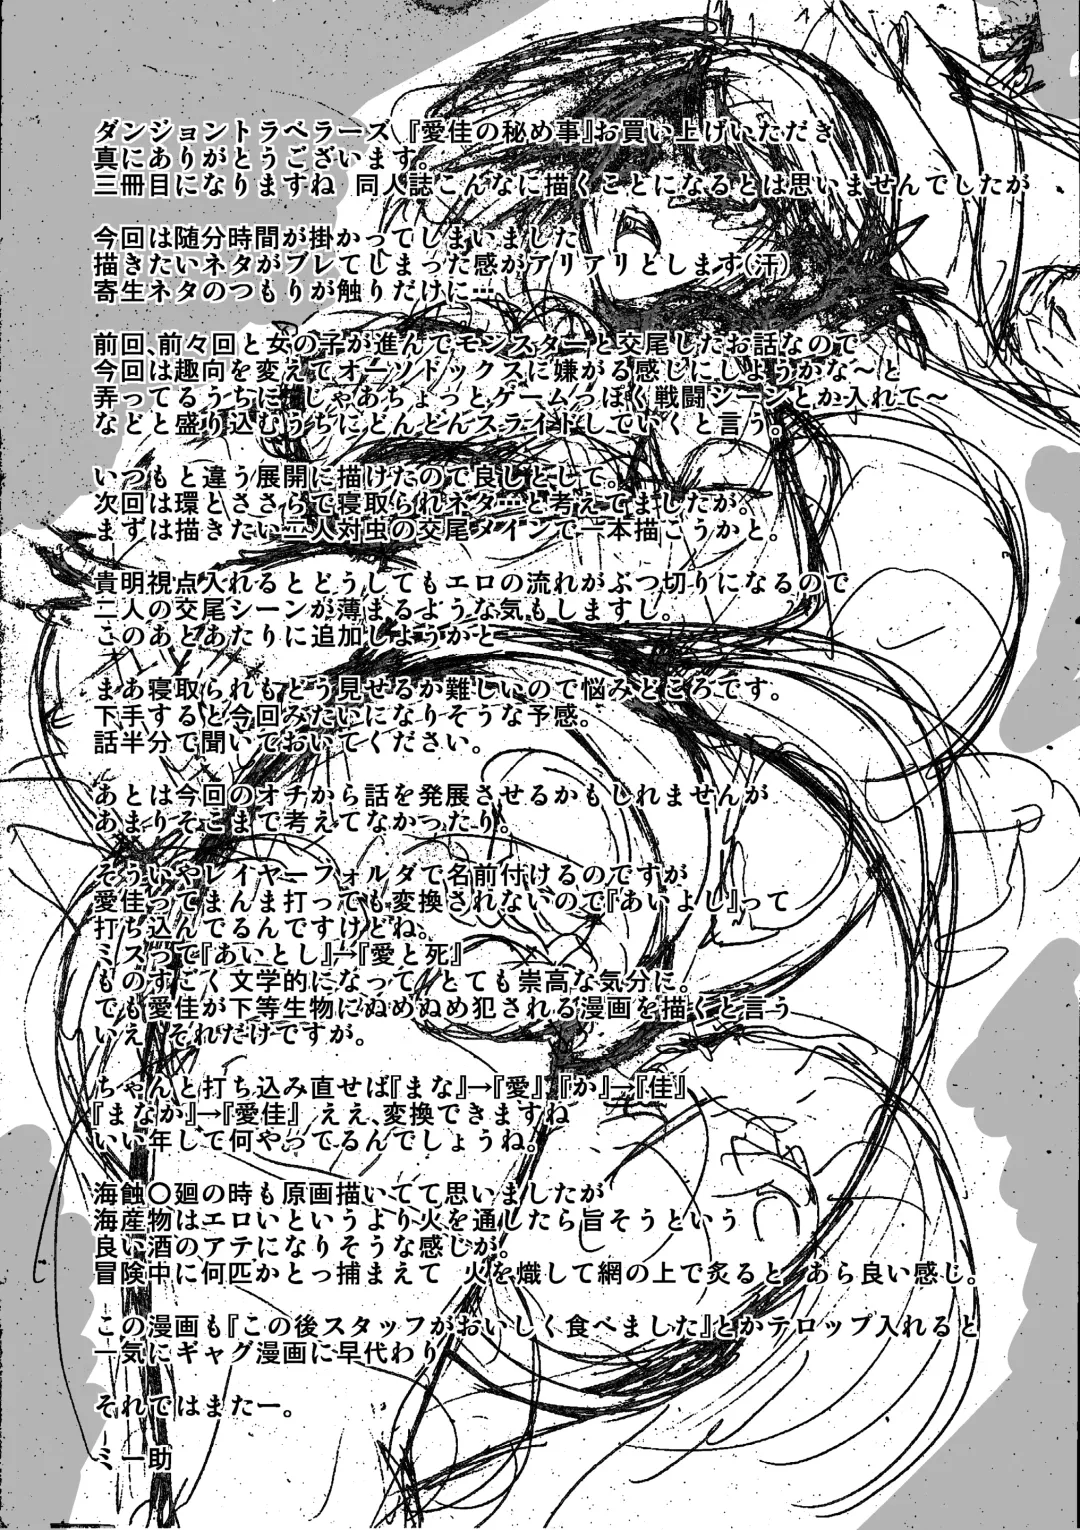 ダンジョントラベラーズ『愛佳の秘め事』お買い上げいただき
真にありがとうございます。
三冊目になりますね　同人誌こんなに描くことになるとは思いませんでしたが
今回は随分時間が掛かってしまいました
描きたいネタがブレてしまった感がアリアリとします(汗)
寄生ネタのつもりが触りだけに…
前回、前々回と女の子が進んでモンスターと交尾したお話なので
今回は趣向を変えてオーソドックスに嫌がる感じにしようかな～と
弄ってるうちに、じゃあちょっとゲームっぽく戦闘シーンとか入れて～
などと盛り込むうちにどんどんスライドしていくと言う。
いつもと違う展開に描けたので良しとして。
次回は環とささらで寝取られネタ…と考えてましたが。
まずは描きたい二人対虫の交尾メインで一本描こうかと。
貴明視点入れるとどうしてもエロの流れがぶつ切りになるので
二人の交尾シーンが薄まるような気もしますし。
このあとあたりに追加しようかと
まあ寝取られもどう見せるか難しいので悩みどころです。
下手すると今回みたいになりそうな予感。
話半分で聞いておいてください。
あとは今回のオチから話を発展させるかもしれませんが
あまりそこまで考えてなかったり。
そういやレイヤーフォルダで名前付けるのですが
愛佳ってまんま打っても変換されないので『あいよし』って
打ち込んでるんですけどね。
ミスって『あいとし』→『愛と死』
ものすごく文学的になって　とても崇高な気分に。
でも愛佳が下等生物にぬめぬめ犯される漫画を描くと言う
いえ　それだけですが。
ちゃんと打ち込み直せば『まな』→『愛』、『か』→『佳』
『まなか』→『愛佳』　ええ、変換できますね
いい年して何やってるんでしょうね。
海蝕〇廻の時も原画描いてて思いましたが
海産物はエロいというより火を通したら旨そうという
良い酒のアテになりそうな感じが。
冒険中に何匹かとっ捕まえて　火を熾して網の上で炙ると　あら良い感じ。
この漫画も『この後スタッフがおいしく食べました』とかテロップ入れると
一気にギャグ漫画に早代わり
それではまたー。
ミー助